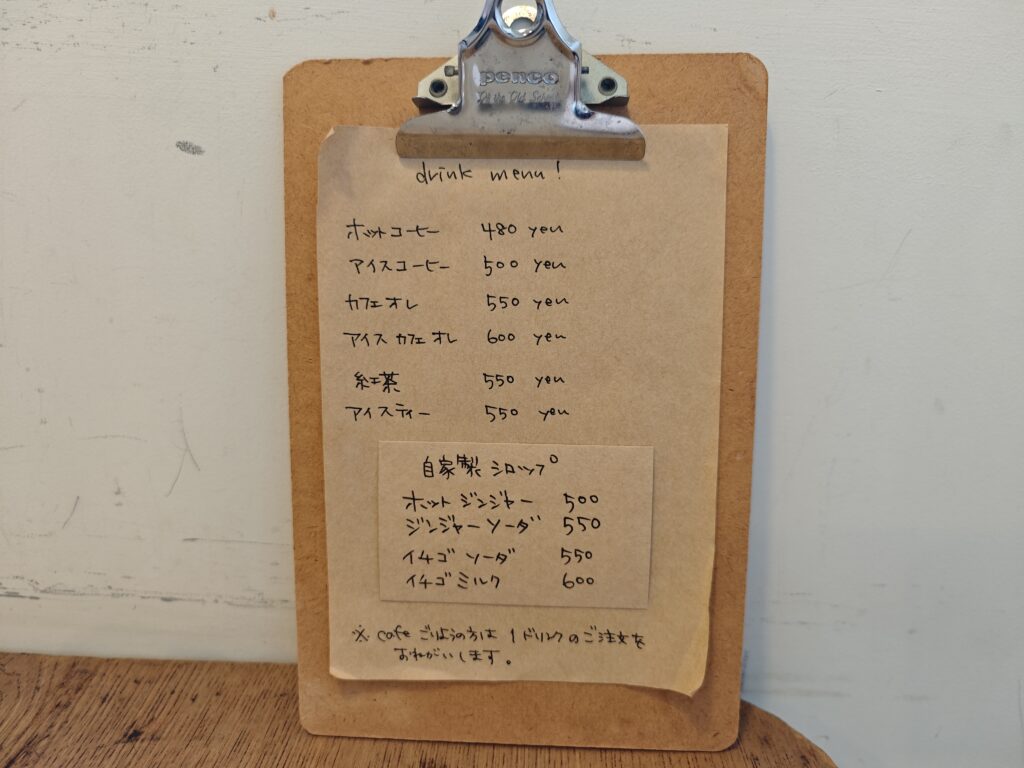 penco
drink menu!
ホットコーヒー 480 yen
アイスコーヒー 500 yen
カフェオレ 550 yen
アイス カフェ オレ 600 yen
紅茶 550 yen
アイスティー 550 yen
自家製 シロップ
ホット ジンジャー 500
ジンジャー ソーダ 550
イチゴ ソーダ 550
イチゴ ミルク 600
※ cafe ごりようの方は 1ドリンクのご注文を
おねがいします。